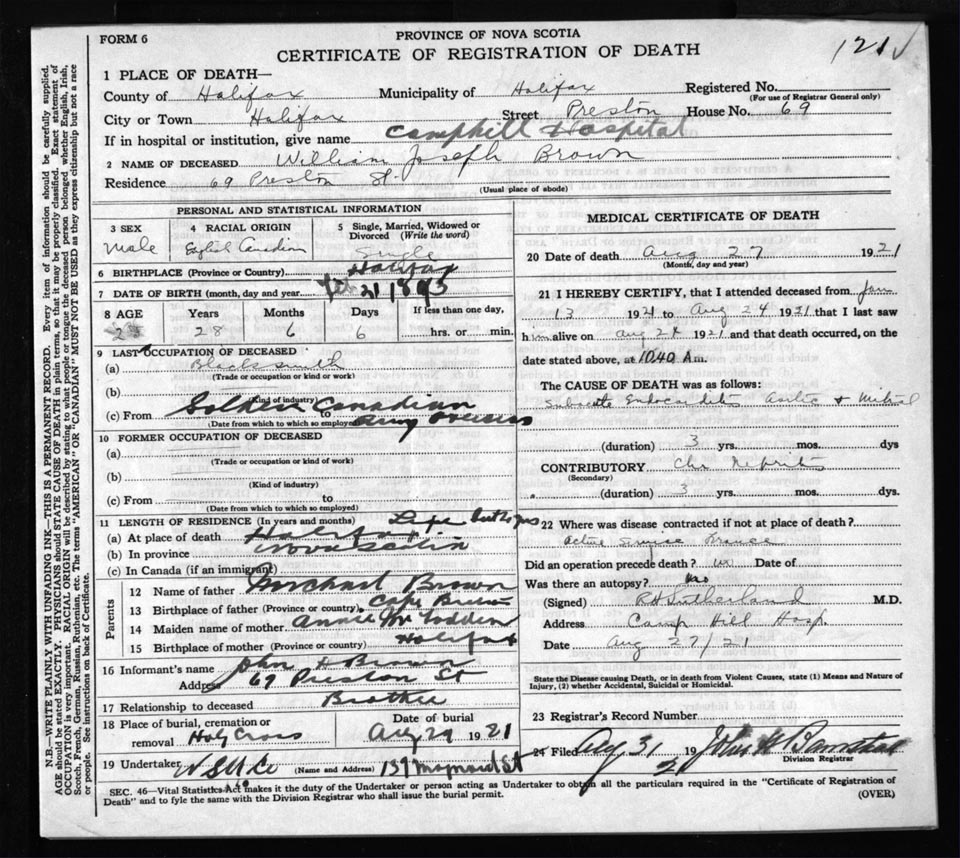 FORM 6
PROVINCE OF NOVA SCOTIA
CERTIFICATE OF REGISTRATION OF DEATH
121
1 PLACE OF DEATH—
County of Halifax Municipality of Halifax Registered No.
(For use of Registrar General only)
City or Town Halifax Street Preston House No. 69
If in hospital or institution, give name Camphill Hospital
2 NAME OF DECEASED William Joseph Brown
Residence 69 Preston St.
(Usual place of abode)
PERSONAL AND STATISTICAL INFORMATION
3 SEX 4 RACIAL ORIGIN 5 Single, Married, Widowed or Divorced (Write the word)
Male Canadian Single
6 BIRTHPLACE (Province or Country) Halifax
7 DATE OF BIRTH (month, day and year Feb 21 1893
8 AGE Years Months Days If less than one day,
28 6 6 hrs. or min.
9 LAST OCCUPATION OF DECEASED
(a) Blacksmith
(Trade or occupation or kind or work)
(b)
(Kind of industry)
(c) From to
Soldier Canadian
(Date from which to which so employed)
Army Overseas
10 FORMER OCCUPATION OF DECEASED
(a)
(Trade or occupation or kind of work)
(b)
(Kind of industry)
(c) From to
(Date from which to which so employed)
11 LENGTH OF RESIDENCE (In years and months) Life
(a) At place of death Halifax
(b) In province Nova Scotia
(c) In Canada (if an immigrant)
Parents
12 Name of father Michael Brown
13 Birthplace of father (Province or country) Cape Breton
14 Maiden name of mother Annie
15 Birthplace of mother (Province or country) Halifax
16 Informant's name John Brown
Address 69 Preston St
17 Relationship to deceased Brother
18 Place of burial, cremation or removal Holy Cross
Date of burial Aug 29 1921
19 Undertaker N S U Co (Name and Address) 139 Maynard St
MEDICAL CERTIFICATE OF DEATH
20 Date of death Aug 27 1921
(Month, day and year)
21 I HEREBY CERTIFY, that I attended deceased from Jan
13 1921 to Aug 24 1921 that I last saw
him alive on Aug 24 1921 and that death occurred, on the
date stated above, at 10.40 Am.
The CAUSE OF DEATH was as follows:
Subacute Endocarditis Aortic & Mitral
(duration) 3 yrs. mos. dys
CONTRIBUTORY Chr Nephritis
(Secondary)
(duration) 3 yrs. mos. dys.
22 Where was disease contracted if not at place of death?
Active Service France
Did an operation precede death? no Date of
Was there an autopsy? no
(Signed) R H Sutherland M.D.
Address Camp Hill Hosp.
Date Aug 27/21
State the Disease causing Death, or in death from Violent Causes, state (1) Means and Nature of
Injury, (2) whether Accidental, Suicidal or Homicidal.
23 Registrar's Record Number
24 Filed Aug 31 1921 John
Division Registrar
SEC. 46—Vital Statistics Act makes it the duty of the Undertaker or person acting as Undertaker to obtain all the particulars required in the "Certificate of Registration of
Death" and to fyle the same with the Division Registrar who shall issue the burial permit.
(OVER)
N.B.—WRITE PLAINLY WITH UNFADING INK—THIS IS A PERMANENT RECORD. Every item of information should be carefully supplied.
AGE should be stated EXACTLY. PHYSICIANS should STATE CAUSE OF DEATH in plain terms, so that it may be properly classified. Exact statement of
OCCUPATION is very important. RACIAL ORIGIN will be described by stating to what people or tongue the deceased person belonged whether English, Irish,
Scotch, French, German, Russian, Ruthenian, etc. The terms "AMERICAN" OR "CANADIAN" MUST NOT BE USED as they express citizenship but not a race
or people. See instructions on back of Certificate.